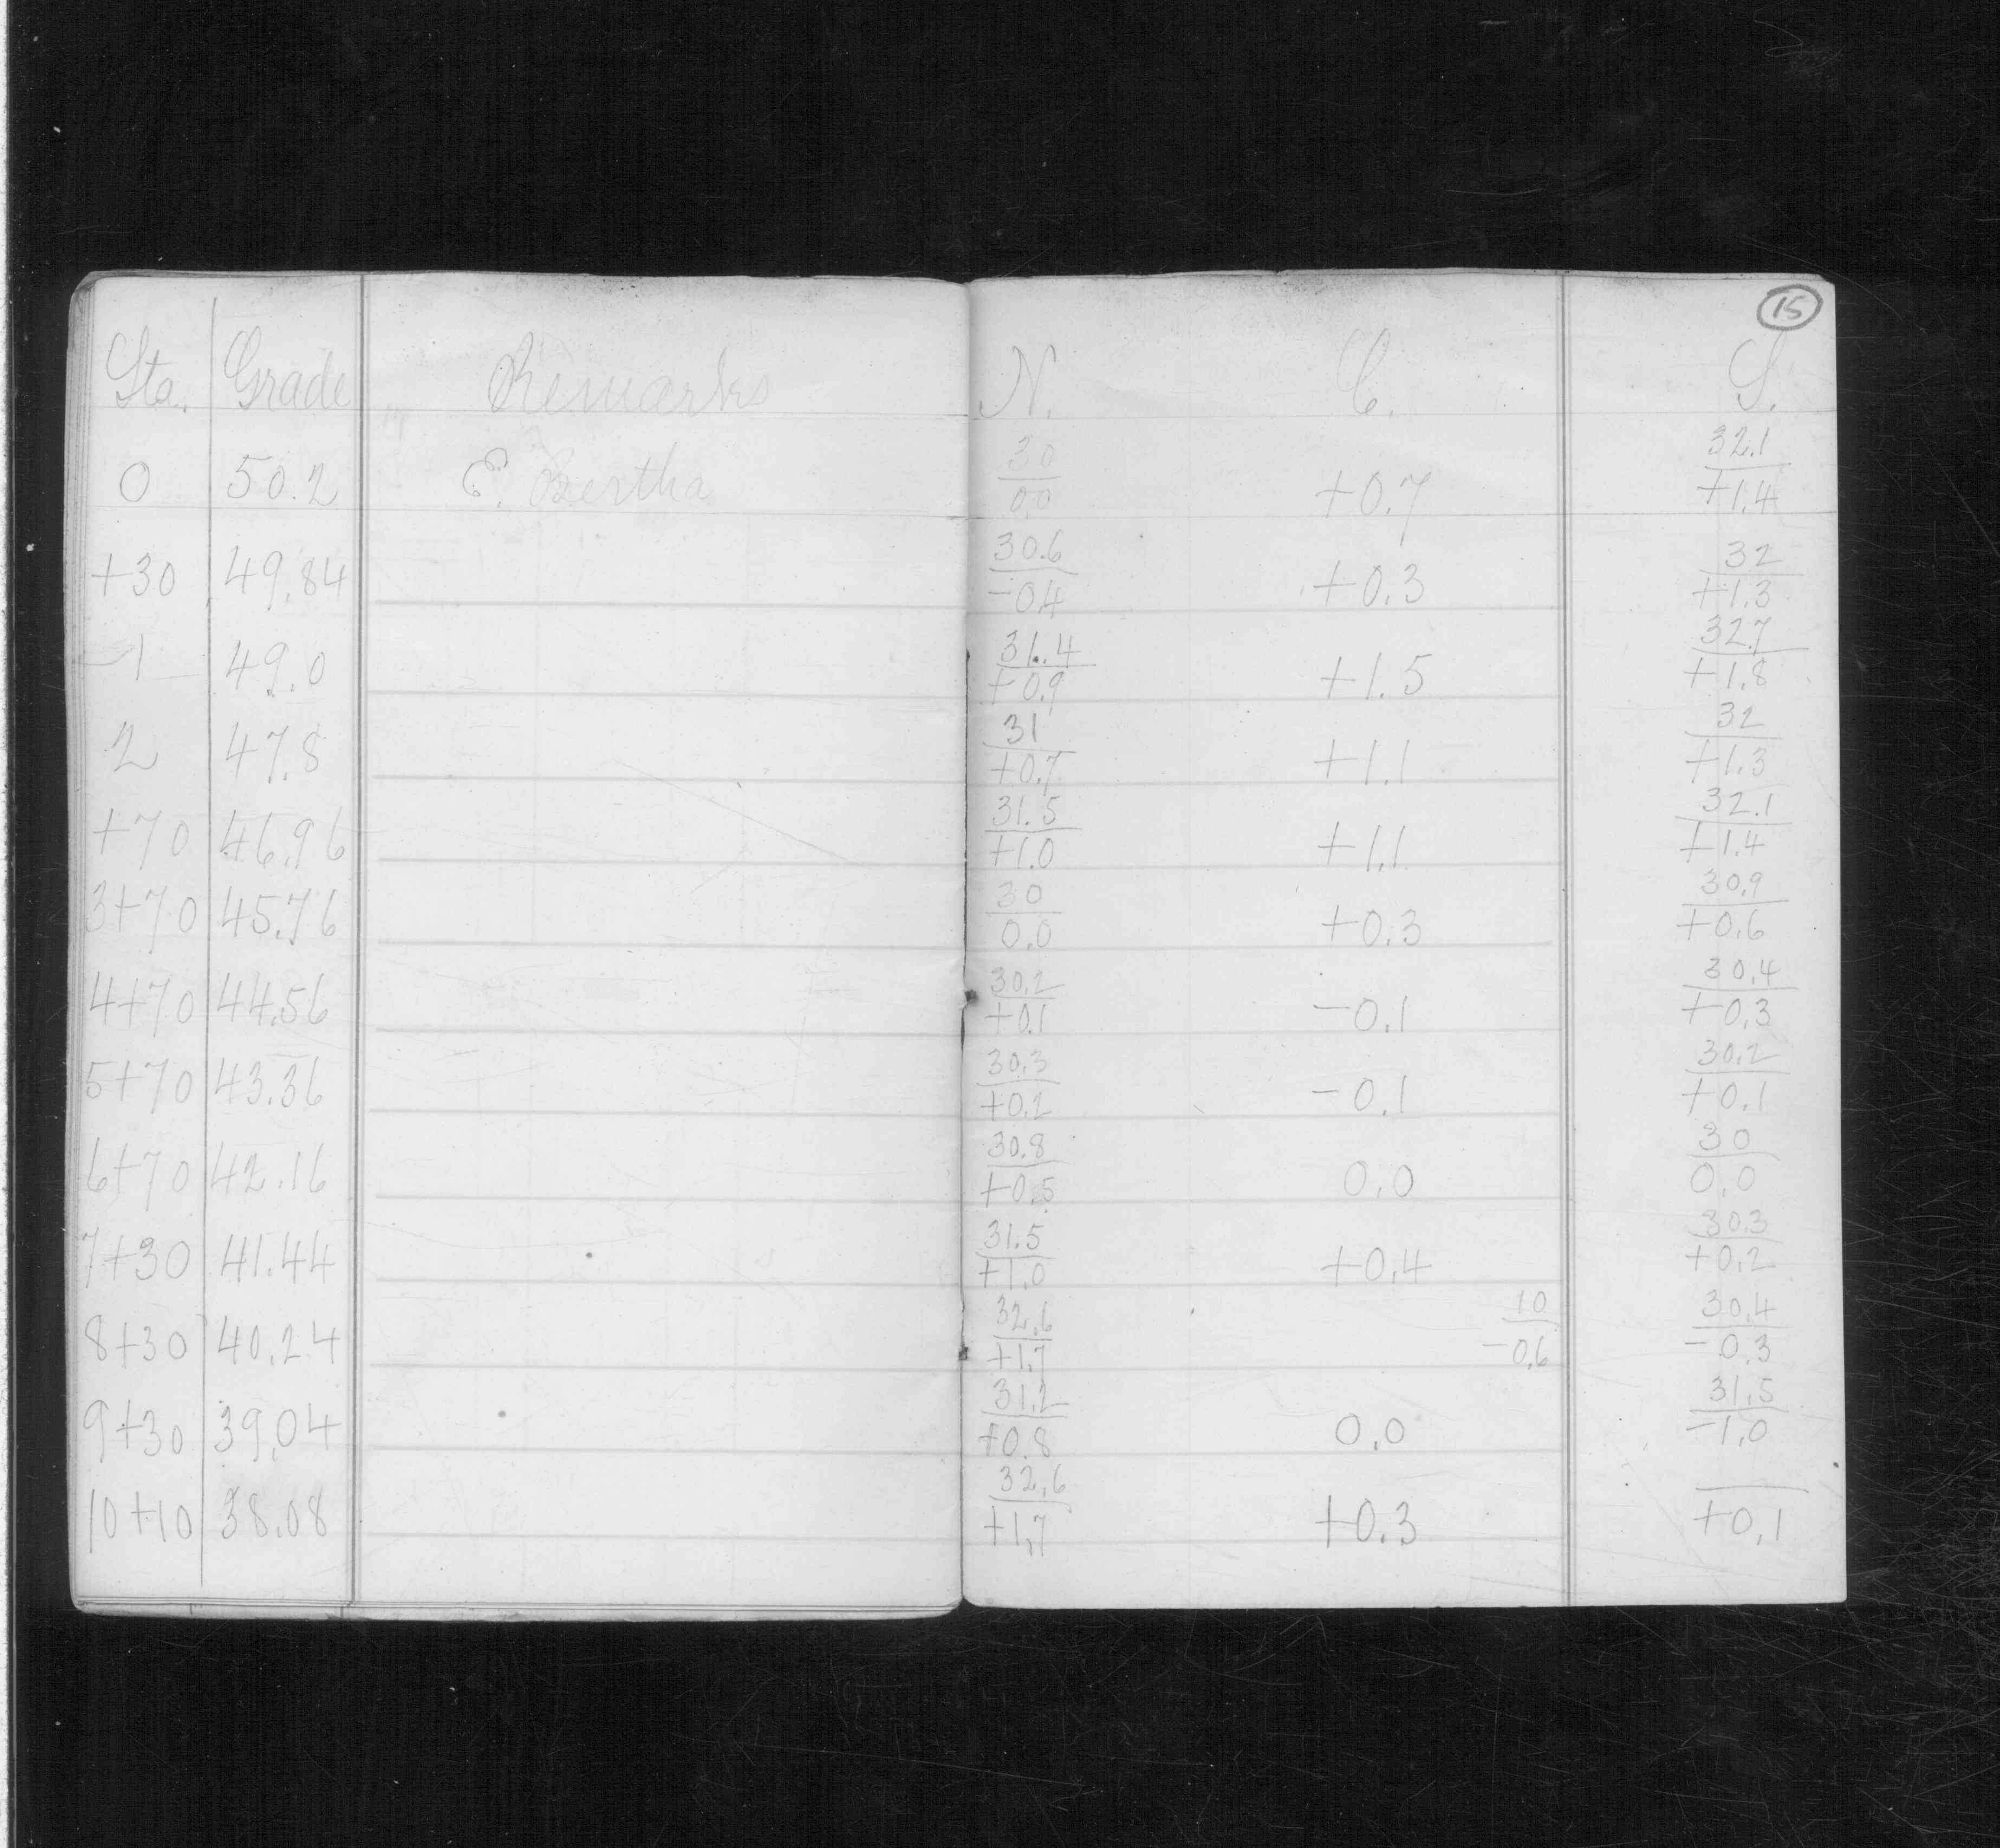 15
Sta. Grade Remarks N. C. S.
0 50.2 E. Bertha 30/0.0 +0.7 32.1/+1.4
+30 49.84 30.6/-0.4 +0.3 32/+1.3
1 49.0 31.4/+0.9 +1.5 32.7/+1.8
2 47.8 31/+0.7 +1.1 32/+1.3
+70 46.96 31.5/+1.0 +1.1 32.1/+1.4
3+70 45.76 30/0.0 +0.3 30.9/+0.6
4+70 44.56 30.2/+0.1 -0.1 30.4/+0.3
5+70 43.36 30.3/+0.2 -0.1 30.2/+0.1
6+70 42.16 30.8/+0.5 0.0 30/0.0
7+30 41.44 31.5/+1.0 +0.4 30.3/+0.2
8+30 40.24 32.6/+1.7 10/-0.6 30.4/-0.3
9+30 39.04 31.2/+0.8 0.0 31.5/-1.0
10+10 38.08 32.6/+1.7 +0.3 +0.1